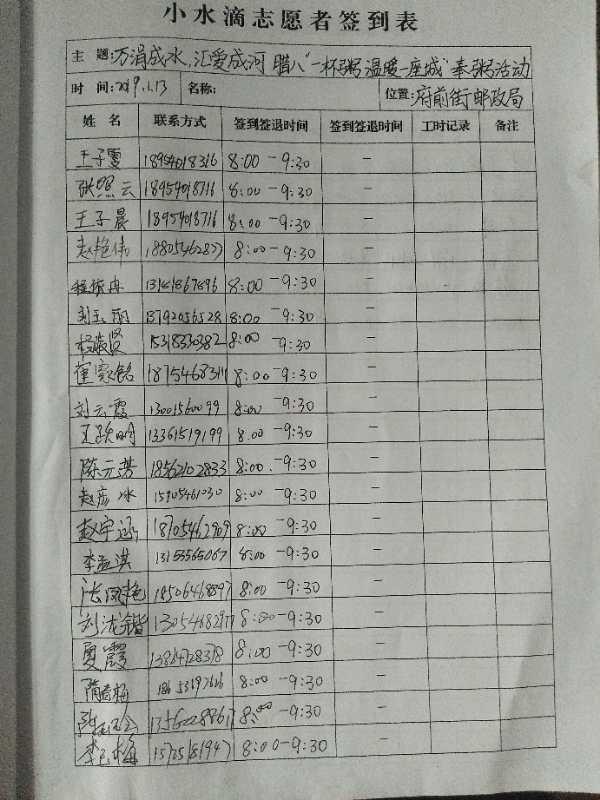 小水滴志愿者签到表
主 题: 万涓成水,汇爱成河 腊八"一杯粥温暖一座城"奉粥活动
时 间: 2019.1.13 名称: 位置: 府前街邮政局
姓 名 联系方式 签到签退时间 签到签退时间 工时记录 备注
王子 18954018316 8:00-9:30 -
张照云 18954018716 8:00-9:30 -
王子晨 18954018716 8:00-9:30 -
赵艳伟 18805462877 8:00-9:30 -
程振冉 13181867896 8:00-9:30 -
刘玉丽 18792056528 8:00-9:30 -
杨春贤 15318330382 8:00-9:30 -
崔家铭 18754683111 8:00-9:30 -
刘云霞 13001560099 8:00-9:30 -
王跃明 13361519199 8:00-9:30 -
陈元芳 18562102833 8:00-9:30 -
赵彦冰 15905461030 8:00-9:30 -
赵宇涵 18705462909 8:00-9:30 -
李孟淇 13153565067 8:00-9:30 -
张凤艳 18506468897 8:00-9:30 -
刘 锴 8:00-9:30 -
夏霞 8:00-9:30 -
隋春梅 8:00-9:30 -
8:00-9:30 -
李 梅 15725181947 8:00-9:30 -